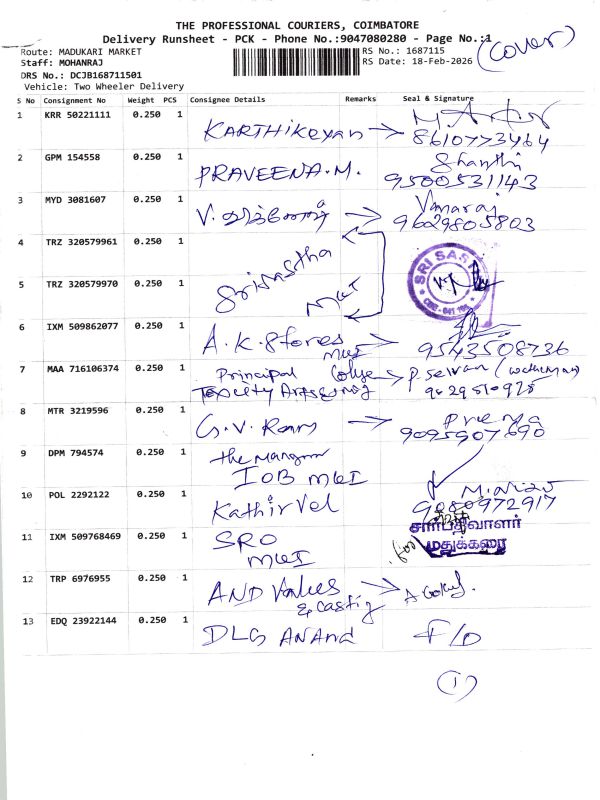 THE PROFESSIONAL COURIERS, COIMBATORE
Delivery Runsheet - PCK - Phone No.:9047080280 - Page No.:1
(Cover)
Route: MADUKARI MARKET
RS No.: 1687115
Staff: MOHANRAJ
RS Date: 18-Feb-2026
DRS No.: DCJB168711501
Vehicle: Two Wheeler Delivery
S No Consignment No Weight PCS Consignee Details Remarks Seal & Signature
1 KRR 50221111 0.250 1 KARTHIKEYAN
8610773464
2 GPM 154558 0.250 1 PRAVEENA.M. Shanthi
9500531143
3 MYD 3081607 0.250 1 V. Vanaraj
9629805803
4 TRZ 320579961 0.250 1
5 TRZ 320579970 0.250 1 Srisastha
MKT
SRI SAS
CBE - 641 105
6 IXM 509862077 0.250 1 A.K. Stores
MKT 9543508736
7 MAA 716106374 0.250 1 Principal College P. Selvan
8 MTR 3219596 0.250 1 G.V. Ram Prema
9095907690
9 DPM 794574 0.250 1 The Manager
IOB MKT
10 POL 2292122 0.250 1 Kathirvel
9080972917
சார்பதிவாளர்
11 IXM 509768469 0.250 1 SRO (for) மதுக்கரை
MKT
12 TRP 6976955 0.250 1 AND Valves
& Casting
13 EDQ 23922144 0.250 1 DLG ANAND F/D
(1)